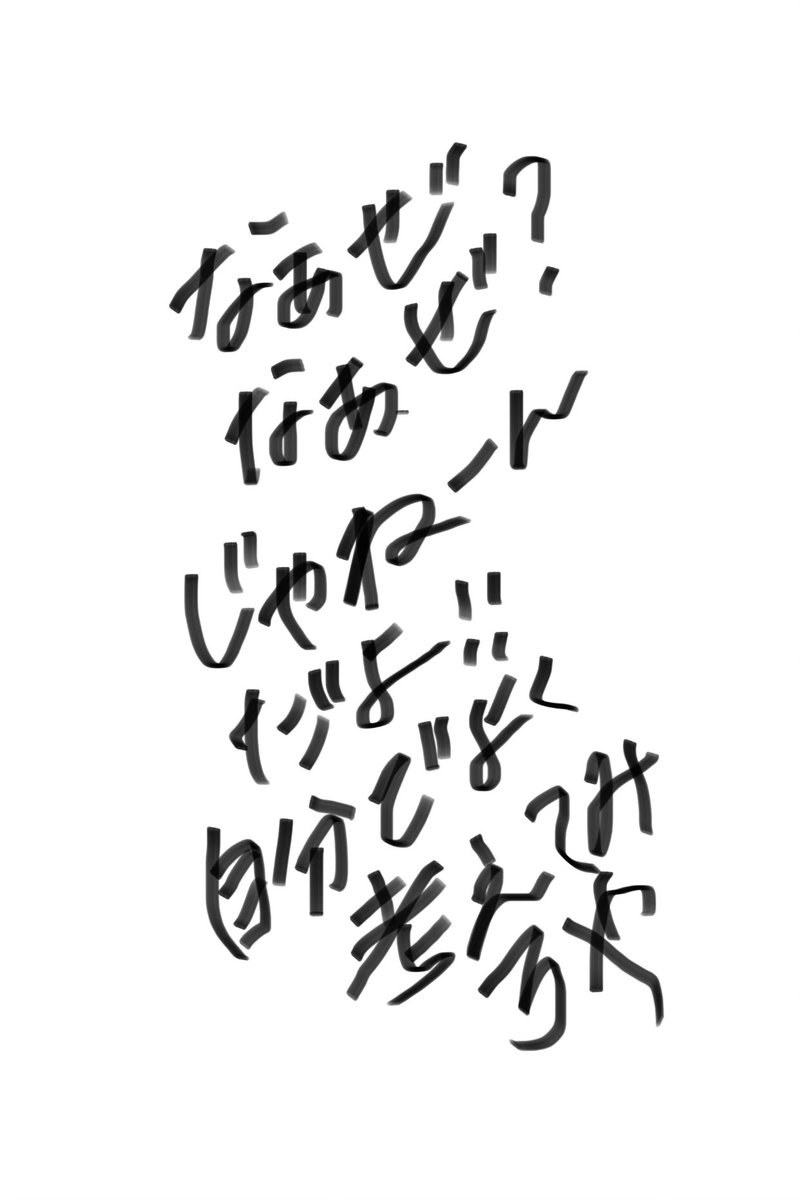 なぁぜ
なぁぜ?
じゃねーん
だよ!!
自分でよく
考えてみ
ろや